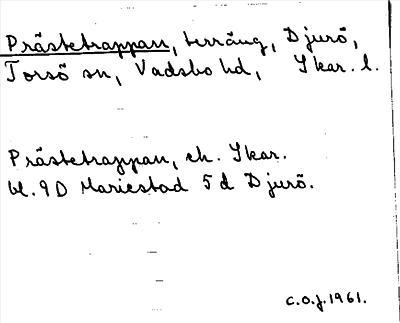 Prästetrappan, terräng, Djurö,
Torsö sn, Vadsbo hd, Skar. l.
Prästetrappan, ek. Skar.
bl. 9D Mariestad 5d Djurö.
C.O.J. 1961.